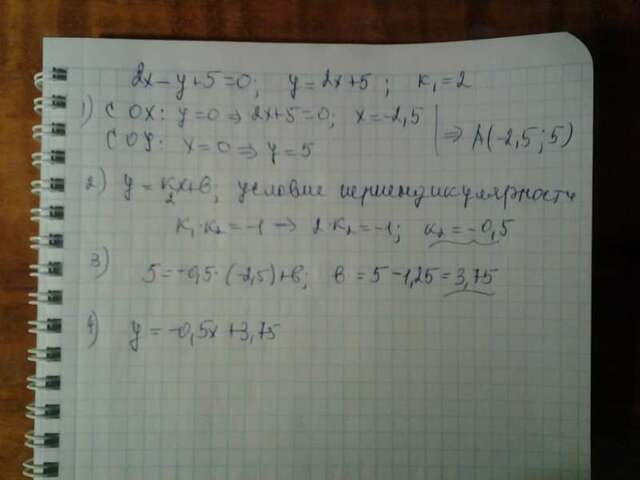 2x-y+5=0; y=2x+5; к₁=2
1) С OX: y=0⇒2x+5=0; x=-2,5
С OY: x=0⇒y=5 ⇒ A(-2,5; 5)
2) y=к₂x+в; условие перпендикулярности
к₁·к₂=-1→2·к₂=-1; к₂=-0,5
3) 5=-0,5·(-2,5)+в; в=5-1,25=3,75
4) y=-0,5x+3,75